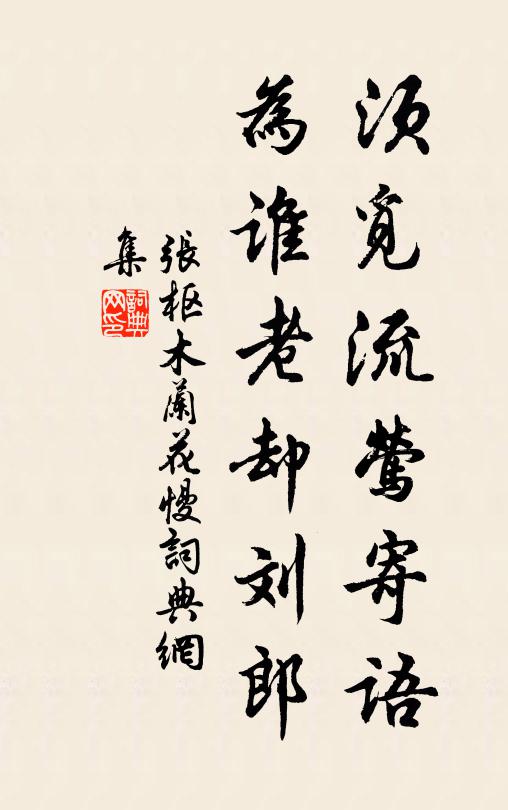 须觅流莺寄语
為谁老却刘郎
張枢木蘭花慢詞典網
集
詞典
网印